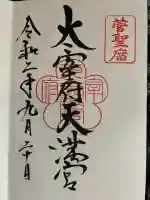 菅聖廟
太宰府天満宮
令和二年九月二十日